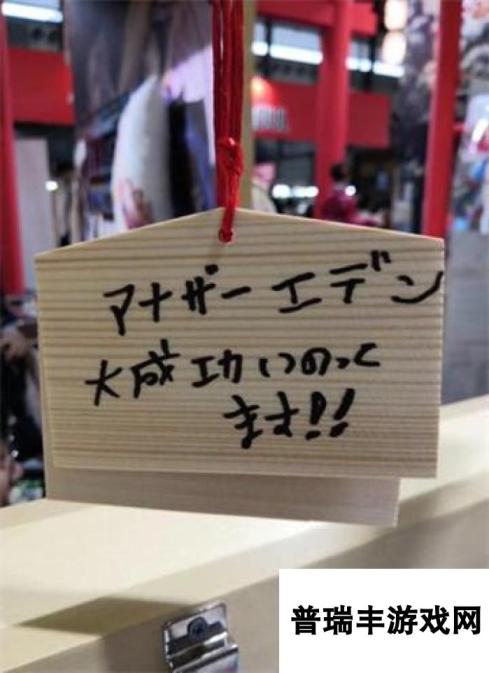 アナザーエデン
大成功いのって
ます!!
普瑞丰游戏网